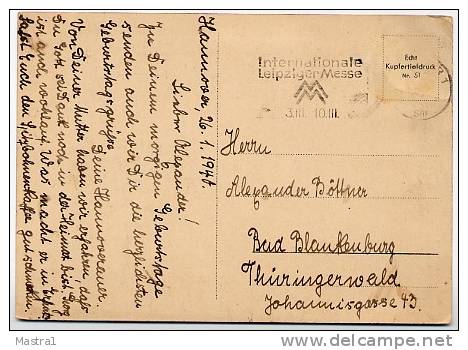 Hannover, 26.1.1940.
Lieber Alexander!
Zu Deinem morgigen Geburtstage
senden auch wir Dir die herzlichsten
Geburtstagsgrüße
Deine Hannoveraner
Von Deiner Mutter haben wir erfahren, daß
Du Gott sei Dank noch in der Heimat bist.
ist auch wohlauf. Was macht er in
Laßt Euch den Bohnenkaffee gut schmecken.
Internationale
Leipziger Messe
MM
3.III. 10.III.
Echt
Kupfertiefdruck
Nr. 51
Herrn
Alexander Böttner
Bad Blankenburg
Thüringerwald
Johannisgasse 43.
Mastra1
delcampe.net